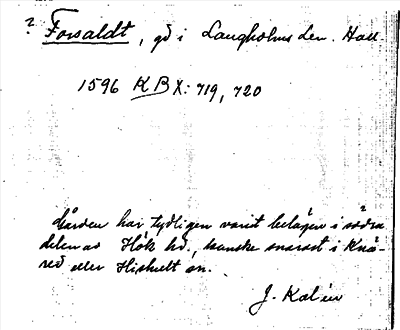 ? Forsaldt, gd i Laugholms Len. Hall.
1596 KB X: 719, 720
Gården har tydligen varit belägen i södra
delen av Höks hd., kanske snarast i Knä-
red eller Hishult sn.
J. Kalén